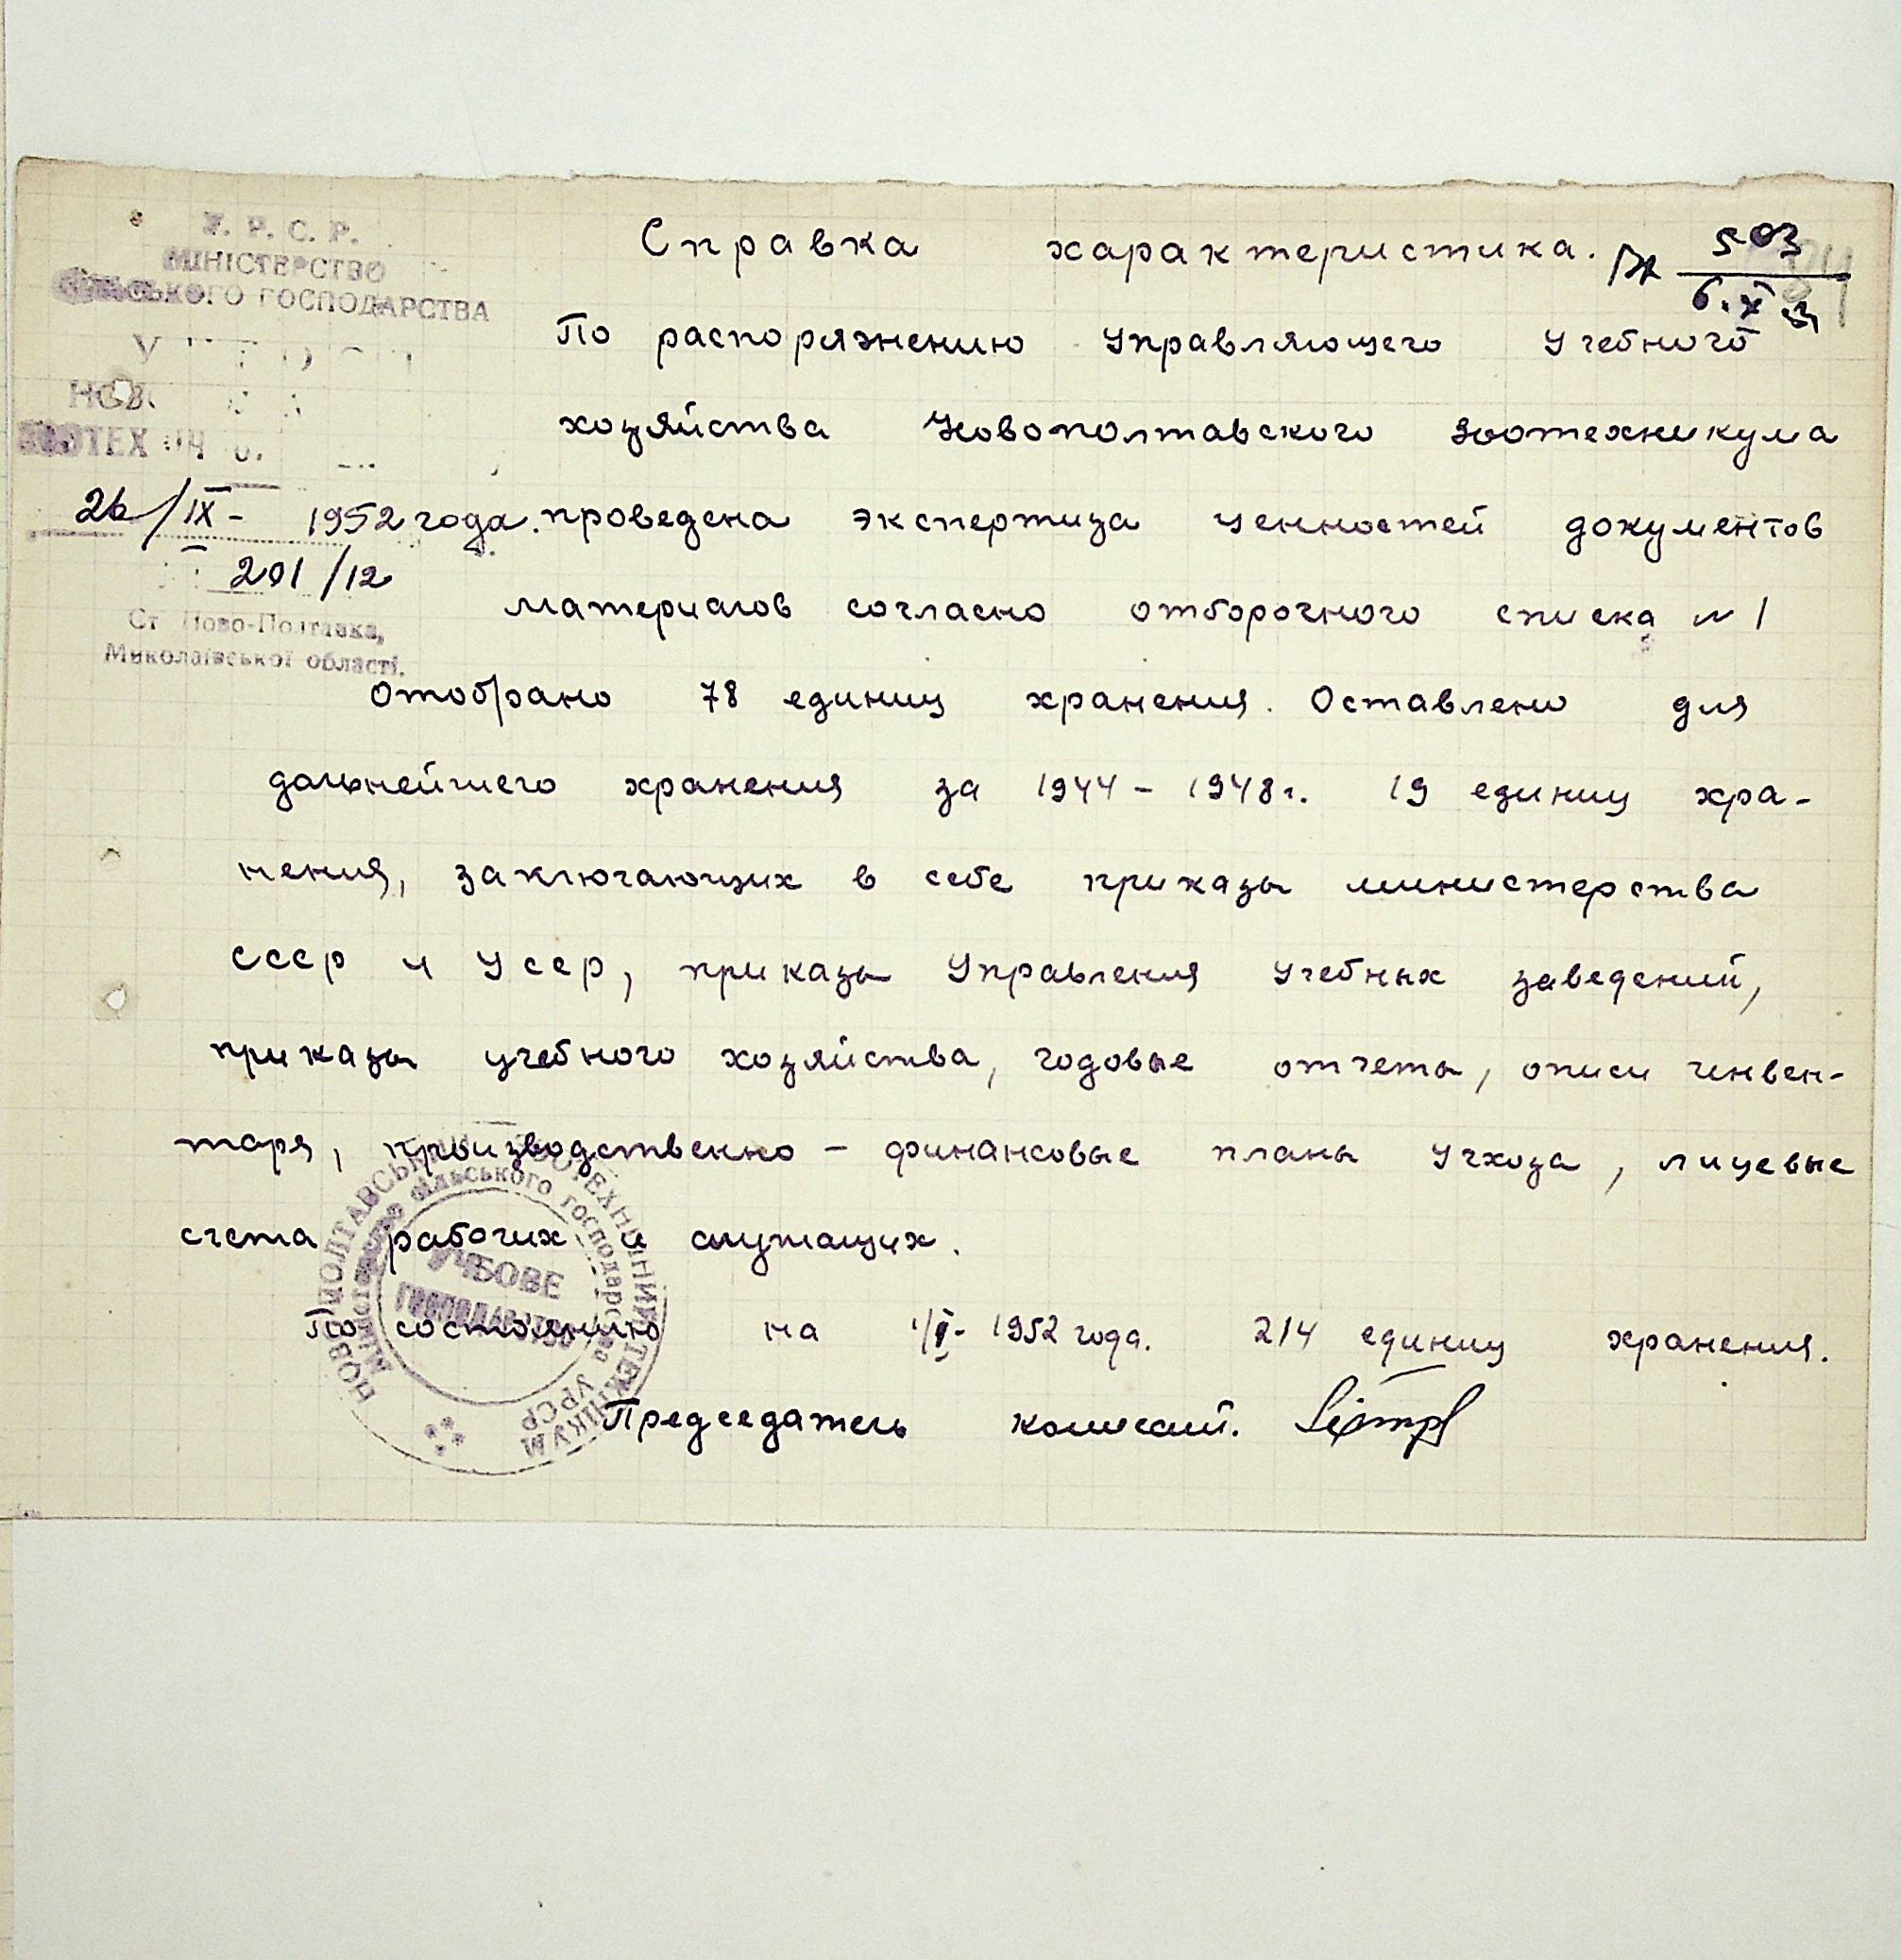 У. Р. С. Р.
МІНІСТЕРСТВО
СІЛЬСЬКОГО ГОСПОДАРСТВА
26/IX - 1952 года.
201/12
Ст Ново-Полтавка,
Миколаївської області.
Справка характеристика.
503
6.X
По распоряжению Управляющего Учебного
хозяйства Новополтавского Зоотехникума
проведена экспертиза ценностей документов
материалов согласно отборочного списка №1
Отобрано 78 единиц хранения. Оставлено для
дальнейшего хранения за 1944 - 1948г. 19 единиц хра-
нения, заключающих в себе приказы министерства
СССР и УССР, приказы Управления Учебных заведений,
приказы учебного хозяйства, годовые отчеты, описи инвен-
таря, производственно - финансовые планы Учхоза, лицевые
счета рабочих и служащих.
По состоянию на 1952 года. 214 единиц хранения.
Председатель комиссий.
НОВОПОЛТАВСЬКИЙ ЗООТЕХНІКУМ
Міністерство сільського господарства УРСР
УЧБОВЕ
ГОСПОДАРСТВО